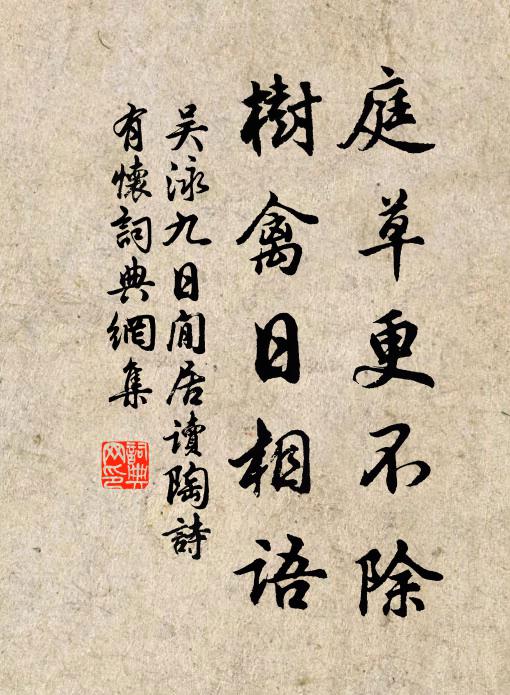 庭草更不除
樹禽日相語
吳泳九日閒居讀陶詩
有懷詞典網集
詞典網印